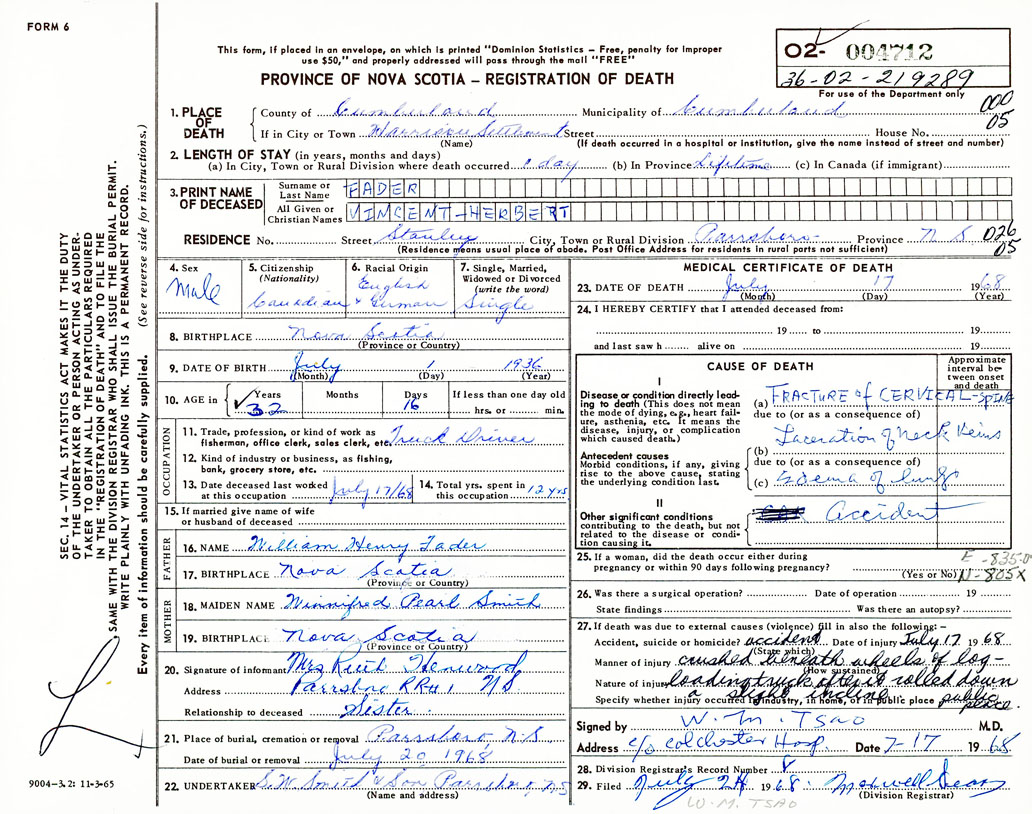 FORM 6
This form, if placed in an envelope, on which is printed "Dominion Statistics – Free, penalty for improper
use $50," and properly addressed will pass through the mail "FREE"
PROVINCE OF NOVA SCOTIA – REGISTRATION OF DEATH
02- 004712
36-02-219289
For use of the Department only
000
05
1. PLACE OF DEATH
County of Cumberland Municipality of Cumberland
If in City or Town Harrison Settlement Street House No.
(Name) (If death occurred in a hospital or institution, give the name instead of street and number)
2. LENGTH OF STAY (in years, months and days)
(a) In City, Town or Rural Division where death occurred day (b) In Province Lifetime (c) In Canada (if immigrant)
3. PRINT NAME OF DECEASED
Surname or Last Name FADER
All Given or Christian Names VINCENT-HERBERT
RESIDENCE No. Street Stanley City, Town or Rural Division Parrsboro Province N S
(Residence means usual place of abode. Post Office Address for residents in rural parts not sufficient)
026
05
4. Sex
Male
5. Citizenship
(Nationality)
Canadian
6. Racial Origin
English
& German
7. Single, Married,
Widowed or Divorced
(write the word)
Single
8. BIRTHPLACE Nova Scotia
(Province or Country)
9. DATE OF BIRTH July 1 1936
(Month) (Day) (Year)
10. AGE in Years Months Days If less than one day old
32 16 hrs. or min.
OCCUPATION
11. Trade, profession, or kind of work as
fisherman, office clerk, sales clerk, etc. Truck Driver
12. Kind of industry or business, as fishing,
bank, grocery store, etc.
13. Date deceased last worked
at this occupation July 17/68
14. Total yrs. spent in
this occupation 12 yrs
15. If married give name of wife
or husband of deceased
FATHER
16. NAME William Henry Fader
17. BIRTHPLACE Nova Scotia
(Province or Country)
MOTHER
18. MAIDEN NAME Winnifred Pearl Smith
19. BIRTHPLACE Nova Scotia
(Province or Country)
20. Signature of informant Mrs Ruth Henwood
Address Parrsboro RR#1 NS
Relationship to deceased Sister
21. Place of burial, cremation or removal Parrsboro N.S
Date of burial or removal July 20, 1968
22. UNDERTAKER S.W. Smith & Son Parrsboro, NS
(Name and address)
MEDICAL CERTIFICATE OF DEATH
23. DATE OF DEATH July 17 1968
(Month) (Day) (Year)
24. I HEREBY CERTIFY that I attended deceased from:
19 to 19
and last saw h alive on 19
CAUSE OF DEATH
Approximate
interval be-
tween onset
and death
I
Disease or condition directly lead-
ing to death (This does not mean
the mode of dying, e.g., heart fail-
ure, asthenia, etc. It means the
disease, injury, or complication
which caused death.)
(a) FRACTURE of CERVICAL-SPINE
due to (or as a consequence of)
Laceration of Neck Veins
Antecedent causes
Morbid conditions, if any, giving
rise to the above cause, stating
the underlying condition last.
(b)
due to (or as a consequence of)
(c) Edema of lungs
II
Other significant conditions
contributing to the death, but not
related to the disease or condi-
tion causing it.
Accident
25. If a woman, did the death occur either during
pregnancy or within 90 days following pregnancy?
(Yes or No)
E-835-0
N-805X
26. Was there a surgical operation? Date of operation 19
State findings Was there an autopsy?
27. If death was due to external causes (violence) fill in also the following:–
Accident, suicide or homicide? accident Date of injury July 17 1968
(State which)
Manner of injury crushed beneath wheels of log-
(How sustained)
Nature of injury loading truck after it rolled down
a slight incline.
Specify whether injury occurred in industry, in home, or in public place public place.
Signed by W. M. TSAO M.D.
Address c/o Colchester Hosp. Date 7-17 1968
28. Division Registrar's Record Number 8
29. Filed July 24 1968.
(Division Registrar)
W.M. TSAO
SEC. 14 – VITAL STATISTICS ACT MAKES IT THE DUTY
OF THE UNDERTAKER OR PERSON ACTING AS UNDER-
TAKER TO OBTAIN ALL THE PARTICULARS REQUIRED
IN THE "REGISTRATION OF DEATH" AND TO FILE THE
SAME WITH THE DIVISION REGISTRAR WHO SHALL ISSUE THE BURIAL PERMIT.
WRITE PLAINLY WITH UNFADING INK. THIS IS A PERMANENT RECORD.
Every item of information should be carefully supplied. (See reverse side for instructions.)
9004-3.2: 11-3-65